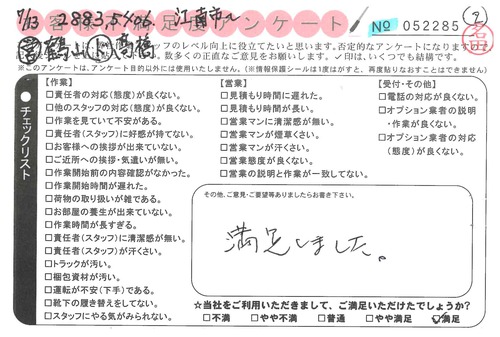 7/13 2883,5406 江南市へ
お客様満足度アンケート
№ 052285
営 鶴山 ト 高橋
スタッフのレベル向上に役立てたいと思います。否定的なアンケートになります
数多くの正直なご意見をお願いします。✓印は、いくつでも結構です。
※このアンケートは、アンケート目的以外には使用いたしません。（※情報保護シールは1度はがすと、再度貼りなおすことはできません）
●チェックリスト
【作業】
□責任者の対応（態度）が良くない。
□他のスタッフの対応（態度）が良くない。
□作業を見ていて不安がある。
□責任者（スタッフ）に好感が持てない。
□お客様への挨拶が出来ていない。
□ご近所への挨拶・気遣いが無い。
□作業開始前の内容確認がなかった。
□作業開始時間が遅れた。
□荷物の取り扱いが雑である。
□お部屋の養生が出来ていない。
□作業時間が長すぎる。
□責任者（スタッフ）に清潔感が無い。
□責任者（スタッフ）が汗くさい。
□トラックが汚い。
□梱包資材が汚い。
□運転が不安（下手）である。
□靴下の履き替えをしてない。
□スタッフにやる気がみられない。
【営業】
□見積もり時間に遅れた。
□見積もり時間が長い。
□営業マンに清潔感が無い。
□営業マンが煙草くさい。
□営業マンが汗くさい。
□営業態度が良くない。
□営業の説明と作業が一致してない。
【受付・その他】
□電話の対応が良くない。
□オプション業者の説明
・作業が良くない。
□オプション業者の対応
（態度）が良くない。
その他、ご意見・ご要望等ありましたらお書き下さい。
満足しました。
☆当社をご利用いただきまして、ご満足いただけたでしょうか？
□不満 □やや不満 □普通 □やや満足 ☑満足